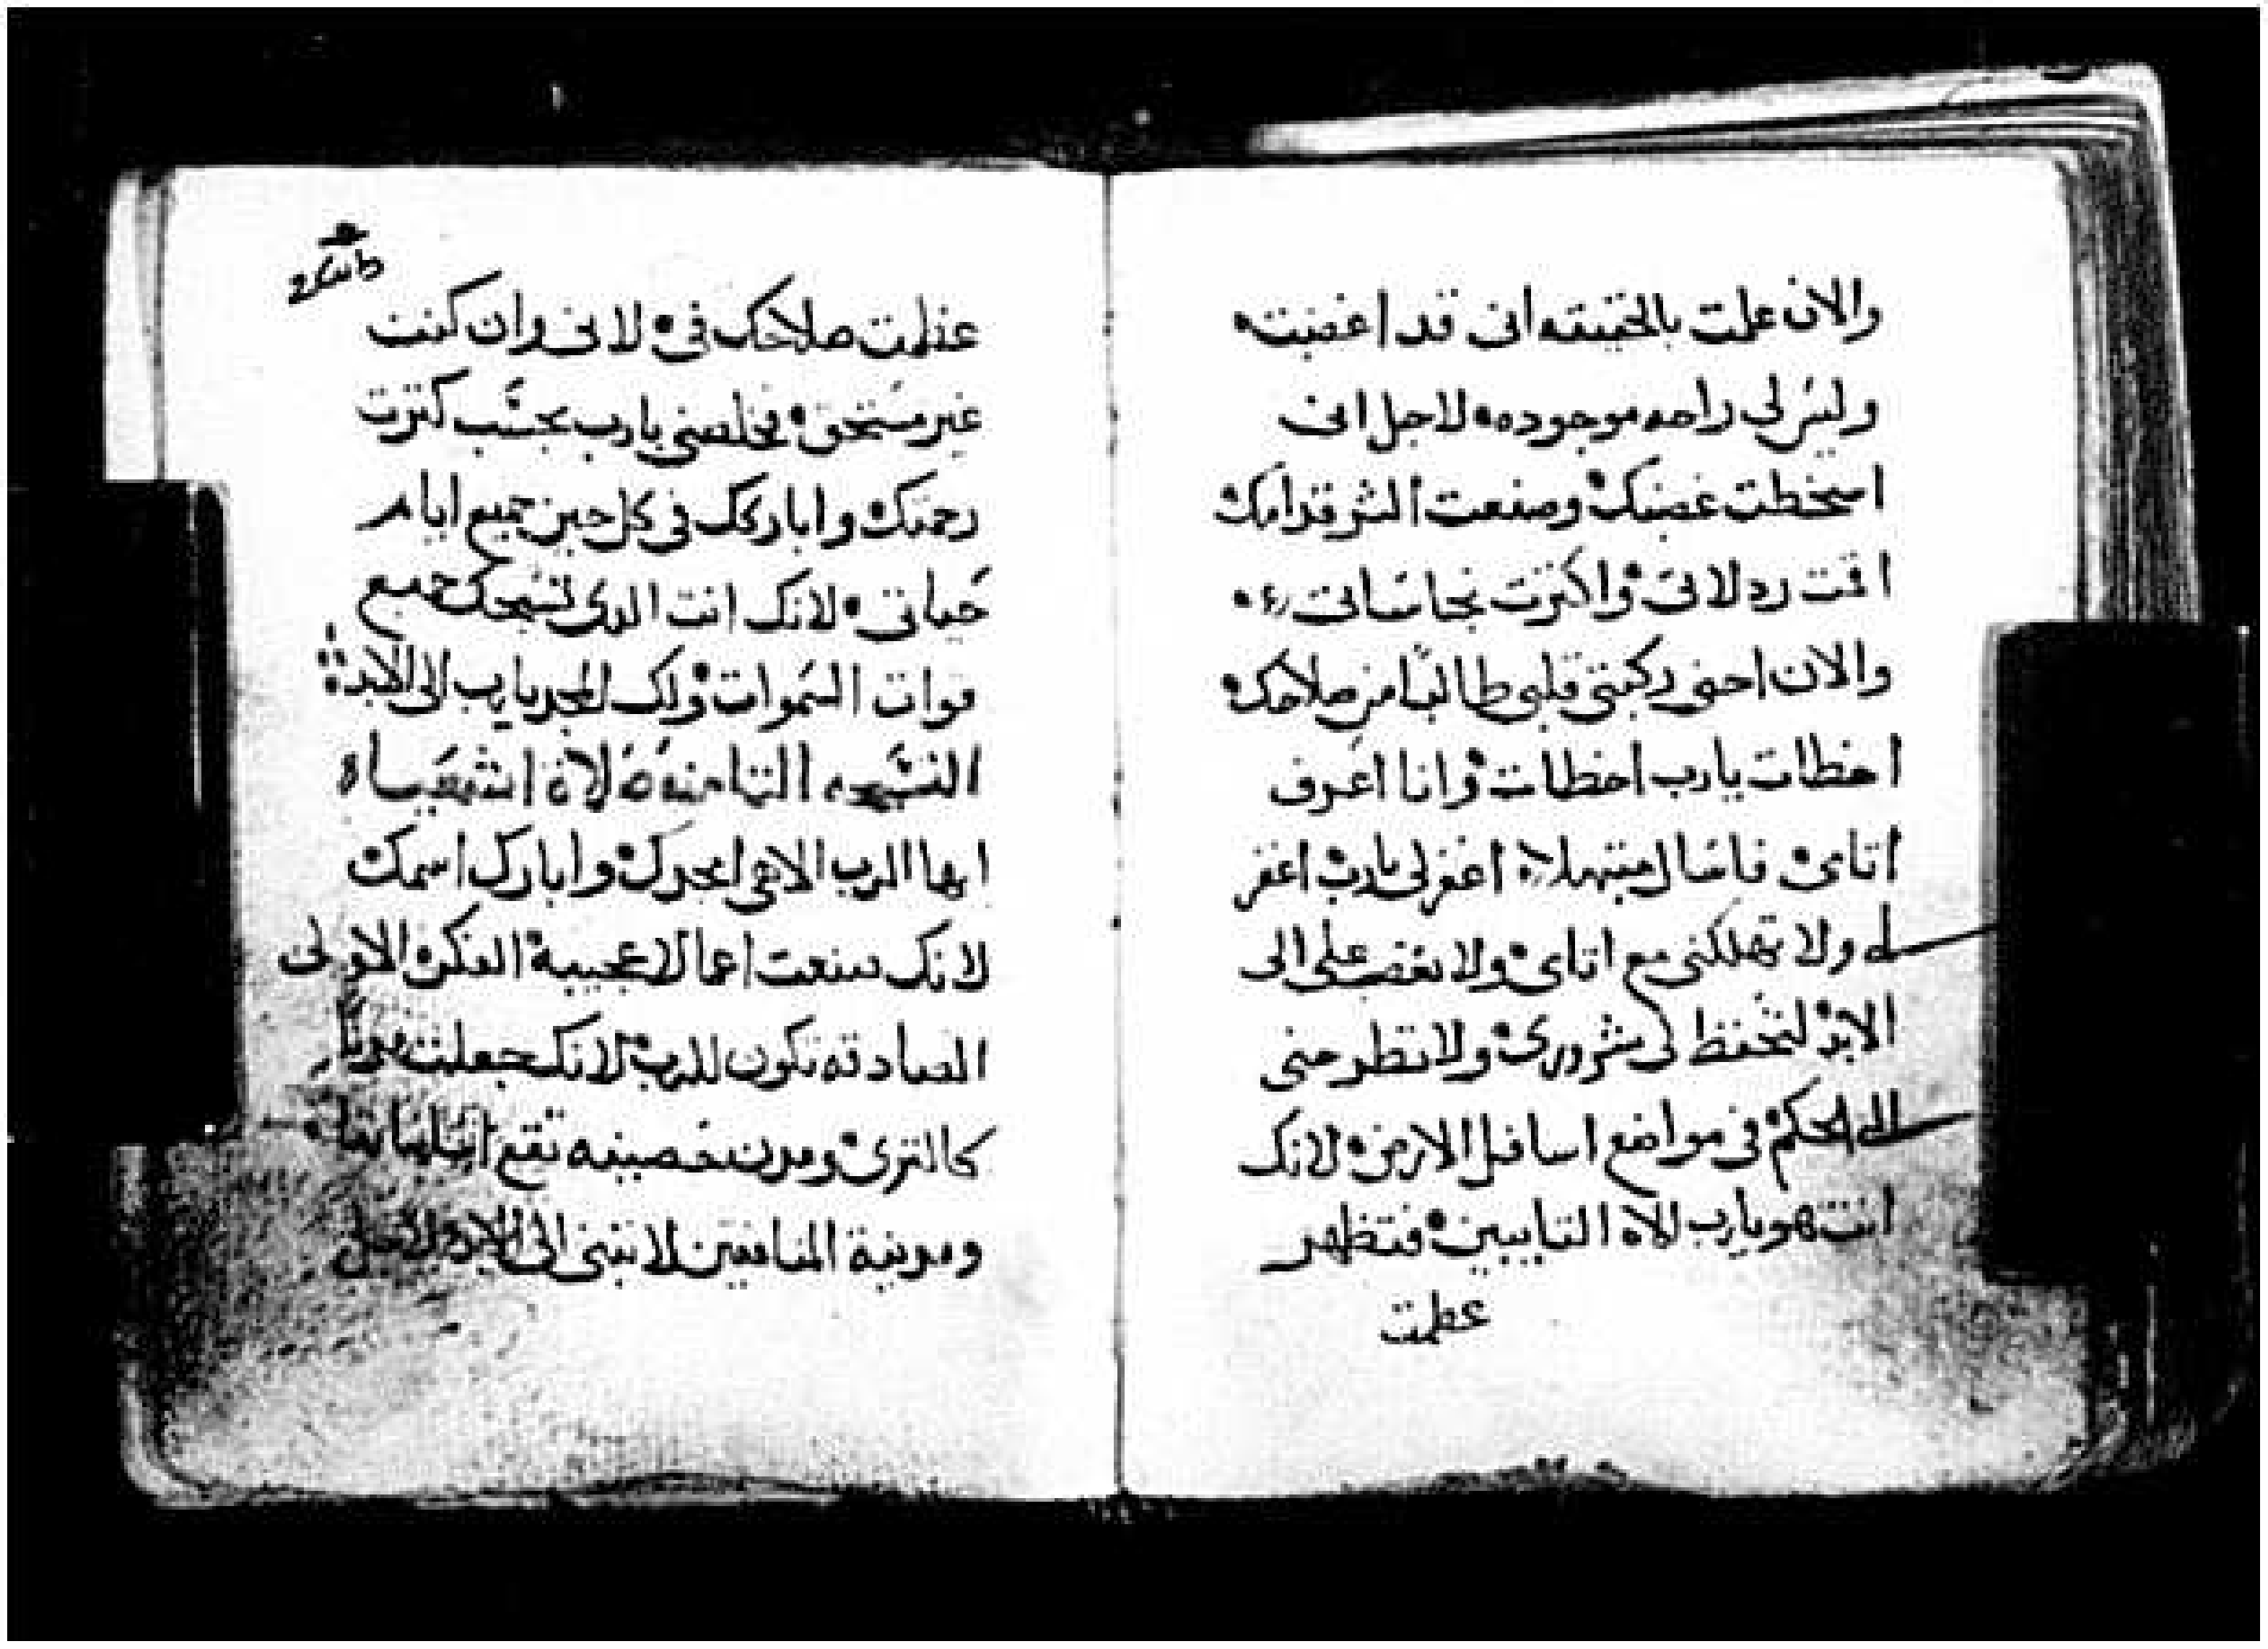 والان علمت بالحقيقه انى قد اغضبت
وليس لي راحه موجوده لاجل انى
اسخطت غضبك وصنعت الشر قدامك
اقمت ردلاتى واكترت نجاساتى
والان احنى ركبتي قلبي طالبا من صلاحك
اخطات يارب اخطات وانا اعرف
اتامى فاسال مبتهلا اغفر لى يارب اغفر
لى ولا تهلكنى مع اتامى ولا تغضب على الى
الابد لتحفظ لى شرورى ولا تطرحنى
الى الحكم فى مواضع اسافل الارض لانك
انت هو يارب الاه التايبين فتظهر
عظمت
عظمت صلاحك فى لانى وان كنت
غير مستحق تخلصني يارب بحسب كترت
رحمتك واباركك فى كل حين جميع ايام
حياتى لانك انت الدى تسبحك جميع
قوات السموات ولك المجد يارب الى الابد
التسبحه التامنه صلاة اشعياء
ايها الرب الاهى امجدك وابارك اسمك
لانك صنعت اعمالا عجيبة الفكره الاولى
الصادقه تكون للرب لانك جعلت مدنا
كالترى ومدن حصينه تقع اساساتها
ومدينة المنافقين لا تبنى الى الابد